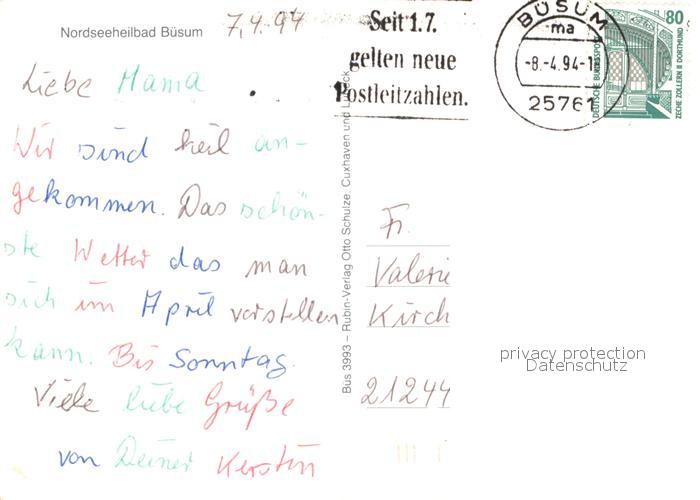 Nordseeheilbad Büsum
7.4.94
Seit 1.7.
gelten neue
Postleitzahlen.
BÜSUM
ma
-8.-4.94-1
25761
80
DEUTSCHE BUNDESPOST
ZECHE ZOLLERN II DORTMUND
Liebe Mama
Wir sind heil an-
gekommen. Das schön-
ste Wetter das man
sich im April vorstellen
kann. Bis Sonntag.
Viele liebe Grüße
von Deiner Kerstin
Büs 3993 – Rubin-Verlag Otto Schulze Cuxhaven und Lübeck
Fr.
Valerie
Kirch
21244
privacy protection
Datenschutz